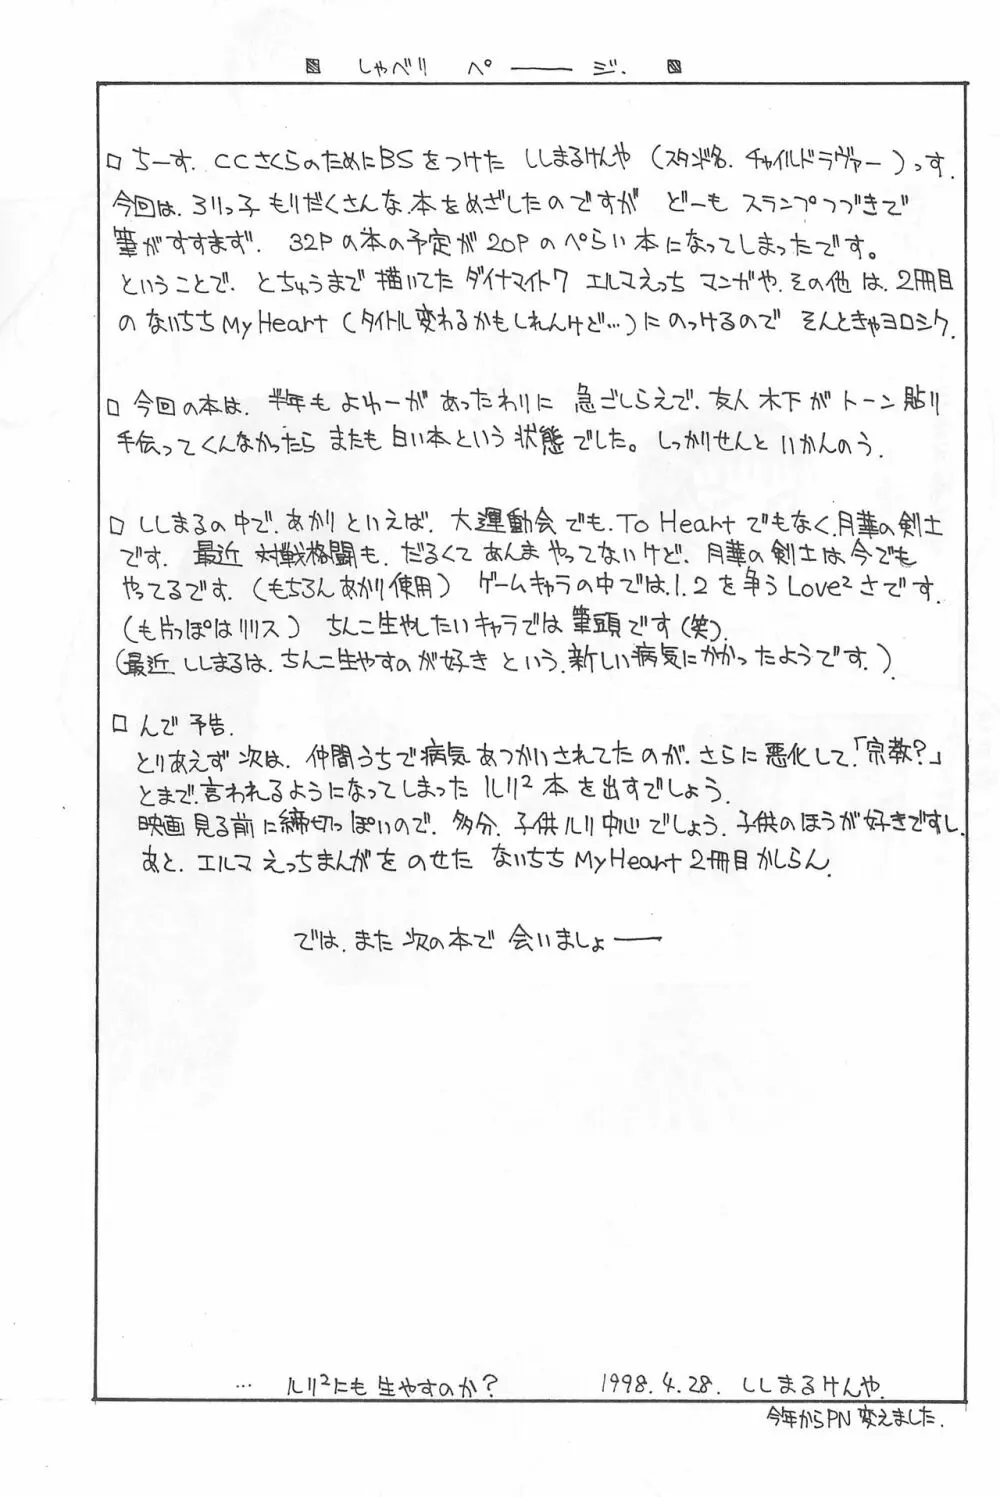 しゃべり ページ.
□ ちーす. CCさくらのためにBSをつけた ししまるけんや (スタンド名. チャイルドラヴァー)っす.
今回は、ろりっ子 もりだくさんな本をめざしたのですが どーも スランプつづきで
筆がすすまず. 32Pの本の予定が20Pのぺらい本になってしまったです。
ということで、とちゅうまで描いてた ダイナマイト7 エルマえっち マンガや、その他は、2冊目
の ないちち My Heart (タイトル変わるかもしれんけど…)にのっけるので そんときゃヨロシク.
□ 今回の本は、半年も よゆーが あったわりに 急ごしらえで、友人 木下が トーン貼り
手伝ってくんなかったら またも 白い本という 状態でした。しっかりせんと いかんのう.
□ ししまるの中で、あかりといえば、大運動会でも、To Heartでもなく、月華の剣士
です. 最近 対戦格闘も、だるくて あんま やってないけど、月華の剣士は今でも
やってるです. (もちろん あかり使用) ゲームキャラの中では、1.2を争うLove²さです.
(も片っぽはリリス) ちんこ生やしたいキャラでは 筆頭です(笑).
(最近 ししまるは、ちんこ生やすのが好き という、新しい病気にかかったようです.)
□ んで 予告.
とりあえず 次は、仲間うちで病気 あつかいされてたのが、さらに悪化して、「宗教?」
とまで、言われるようになってしまった ルリ² 本を出すでしょう.
映画 見る前に締切っぽいので、多分、子供ルリ中心でしょう. 子供のほうが好きですし.
あと、エルマ えっちまんがを のせた ないちち My Heart 2冊目かしらん.
では、また 次の本で 会いましょー
… ルリ²にも 生やすのか? 1998.4.28. ししまるけんや.
今年からPN 変えました.